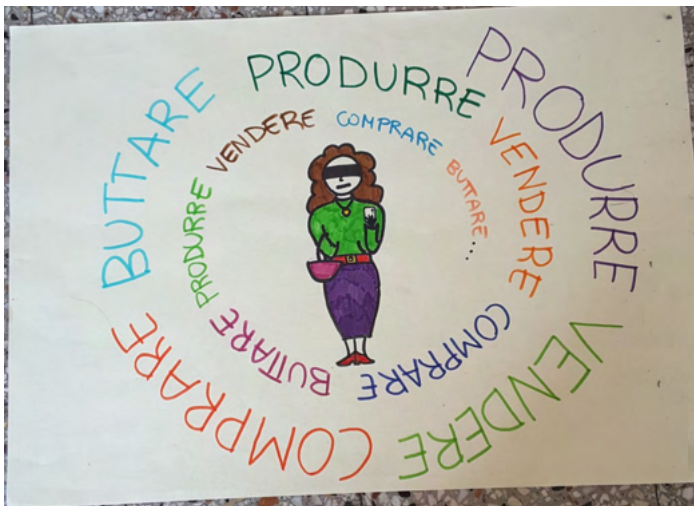 PRODURRE
VENDERE
COMPRARE
BUTTARE
PRODURRE
VENDERE
COMPRARE
BUTTARE
PRODURRE
VENDERE
COMPRARE
BUTTARE...